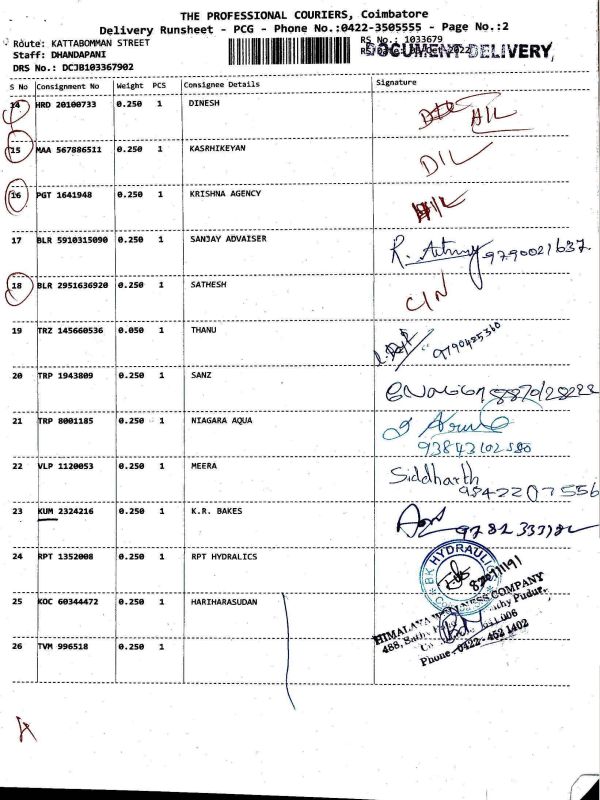 THE PROFESSIONAL COURIERS, Coimbatore
Delivery Runsheet - PCG - Phone No.:0422-3505555 - Page No.:2
Route: KATTABOMMAN STREET
RS No.: 1033679
Staff: DHANDAPANI
DOCUMENT DELIVERY
DRS No.: DCJB103367902
S No Consignment No Weight PCS Consignee Details Signature
14 HRD 20100733 0.250 1 DINESH
15 MAA 567886511 0.250 1 KASRHIKEYAN D/L
16 PGT 1641948 0.250 1 KRISHNA AGENCY
17 BLR 5910315090 0.250 1 SANJAY ADVAISER 9790021637
18 BLR 2951636920 0.250 1 SATHESH C/N
19 TRZ 145660536 0.050 1 THANU 9790425310
20 TRP 1943809 0.250 1 SANZ
21 TRP 8001185 0.250 1 NIAGARA AQUA
22 VLP 1120053 0.250 1 MEERA Siddharth
9842207556
23 KUM 2324216 0.250 1 K.R. BAKES
24 RPT 1352008 0.250 1 RPT HYDRALICS
BK HYDRAULICS
25 KOC 60344472 0.250 1 HARIHARASUDAN
HIMALAYA WELLNESS COMPANY
26 TVM 996518 0.250 1
Phone - 0422 - 452 1402